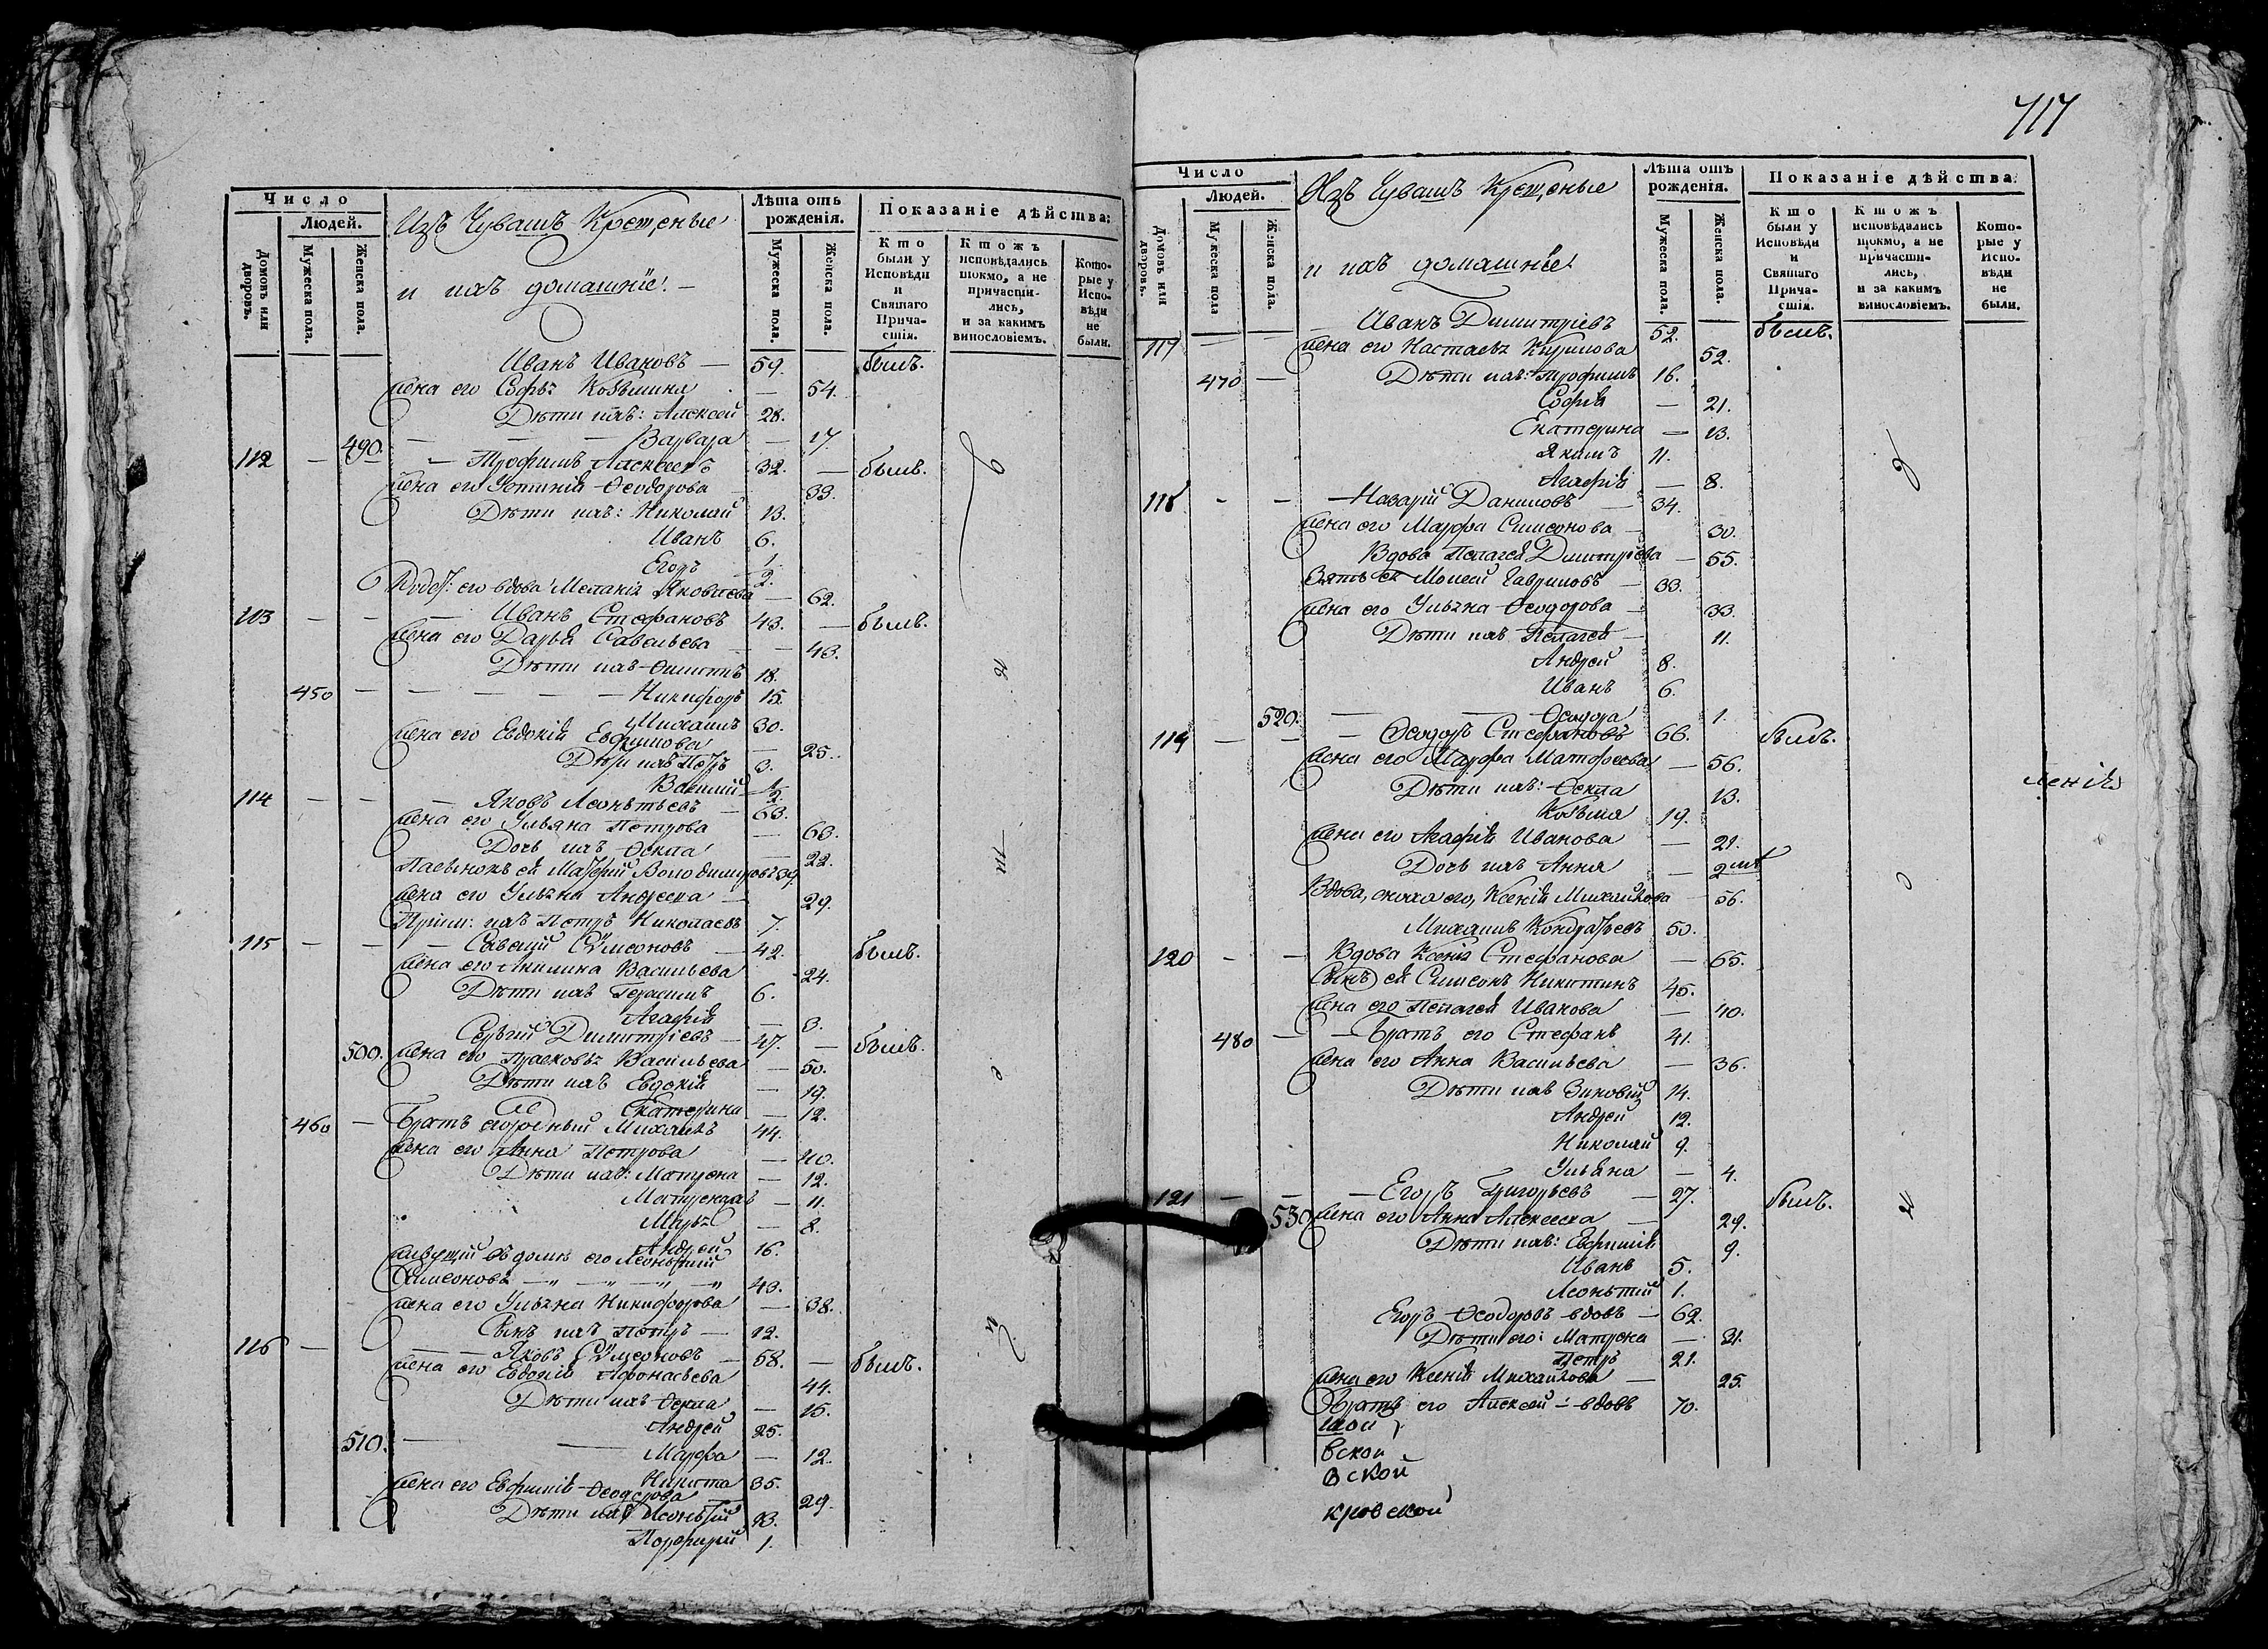 Число
Людей.
Домовъ или дворовъ.
Мужеска пола.
Женска пола.
Изъ Чувашъ Крещеные
и ихъ домашніе.
Лѣта отъ рожденія.
Мужеска пола.
Женска пола.
Показаніе дѣйства:
Кто были у Исповѣди и Святаго Причастія.
Ктожъ исповѣдались токмо, а не причастились, и за какимъ винословіемъ.
Которые у Исповѣди не были.
Иванъ Ивановъ — 59. былъ.
жена его Софья Козьмина — 54.
Дѣти ихъ: Алексей 28.
490. Варвара — 17.
112 — — Трофимъ Алексеевъ 32. — былъ.
жена его Устинія Ѳеодорова 33.
Дѣти ихъ: Николай 13.
Иванъ 6.
Егоръ 1/2.
его вдова Меланія Яковлева — 62.
113 — — Иванъ Стефановъ 43. — былъ.
жена его Дарья Савельева — 43.
Дѣти ихъ Филиппъ 18.
450 — — — Никифоръ 15.
Михаилъ 30.
жена его Евдокія Ефимова — 25.
Дѣти ихъ Петръ 3.
Василий 1/2
114 — — Яковъ Леонтьевъ — 63.
жена его Ульяна Петрова — 63.
Дочь ихъ Ѳекла — 22.
Пасынокъ ей Володимировъ 39.
жена его Ульяна Андреева — 29.
Прiим: ихъ Петръ Николаевъ 7.
115 — — Савелий Сѵмеоновъ — 42. былъ.
жена его Акилина Васильева 24.
Дѣти ихъ Герасимъ 6.
Агафія — 3.
Сергий Димитріевъ — 47. — былъ.
500. жена его Прасковья Васильева — 50.
Дѣти ихъ Евдокія — 19.
Екатерина — 12.
460 — Братъ его родный Михаилъ 44.
жена его Анна Петрова — 40.
Дѣти ихъ: Матрена — 12.
Матрена — 11.
Марья — 8.
Андрей 16.
живущій въ домѣ его Леонтий
Симеоновъ —„ —„ —„ —„ 43.
жена его Ульяна Никифорова — 38.
Сынъ ихъ Петръ — 12.
116 — — Яковъ Сѵмеоновъ — 58. — былъ.
жена его Евдокія Афонасьева 44.
Дѣти ихъ Ѳекла — 15.
Андрей 25.
510. — — Марфа — 12.
Никита 35.
жена его Евфимія Ѳеодорова 29.
Дѣти ихъ Леонтій 13.
Порфирий 1.
717
Число
Людей.
Домовъ или дворовъ.
Мужеска пола
Женска пола.
Изъ Чувашъ Крещеные
и ихъ домашніе
Лѣта отъ рожденія.
Мужеска пола.
Женска пола.
Показаніе дѣйства:
Кто были у Исповѣди и Святаго Причастія.
Ктожъ исповѣдались токмо, а не причастились, и за какимъ винословіемъ.
Которые у Исповѣди не были.
117 — — Иванъ Димитріевъ 52. былъ.
жена его Настасья Кирилова 52.
470 — Дѣти ихъ: Трофимъ 16.
Софія — 21.
Екатерина — 13.
Якимъ 11.
Агафія — 8.
118 — — Назарій Даниловъ — 34.
жена его Марфа Симеонова — 30.
Вдова Пелагея Димитріева — 55.
Зять ея Моисей Гавриловъ — 33.
жена его Ульяна Ѳеодорова — 33.
Дѣти ихъ Пелагея — 11.
Андрей 8.
Иванъ 6.
520. — — Ѳедора 1.
119 — — Ѳеодоръ Стефановъ 66. былъ.
жена его Марфа Матфеева — 56.
Дѣти ихъ: Ѳекла 13.
Козьма 19.
жена его Агафія Иванова — 21.
Дочь ихъ Анна — 2
Вдова, сноха его, Ксенія Михайлова — 56.
Михаилъ Кондратьевъ 50.
120 — — Вдова Ксенія Стефанова — 65.
Сынъ ея Симеонъ Никитинъ 45.
жена его Пелагея Иванова — 40.
480 — — Братъ его Стефанъ 41.
жена его Анна Васильева — 36.
Дѣти ихъ Зиновій 14.
Андрей 12.
Николай 9.
Ульяна — 4.
121 — — Егоръ Григорьевъ — 27. былъ.
530 жена его Анна Алексеева — 29.
Дѣти ихъ: Евфимія 9.
Иванъ 5.
Леонтий 1.
Егоръ Ѳеодоровъ вдовъ — 62.
Дѣти его: Матрена — 31.
Петръ 21.
жена его Ксенія Михайлова — 25.
Братъ его Алексей — вдовъ 70.
шой
вской
вской
кровской
ленія